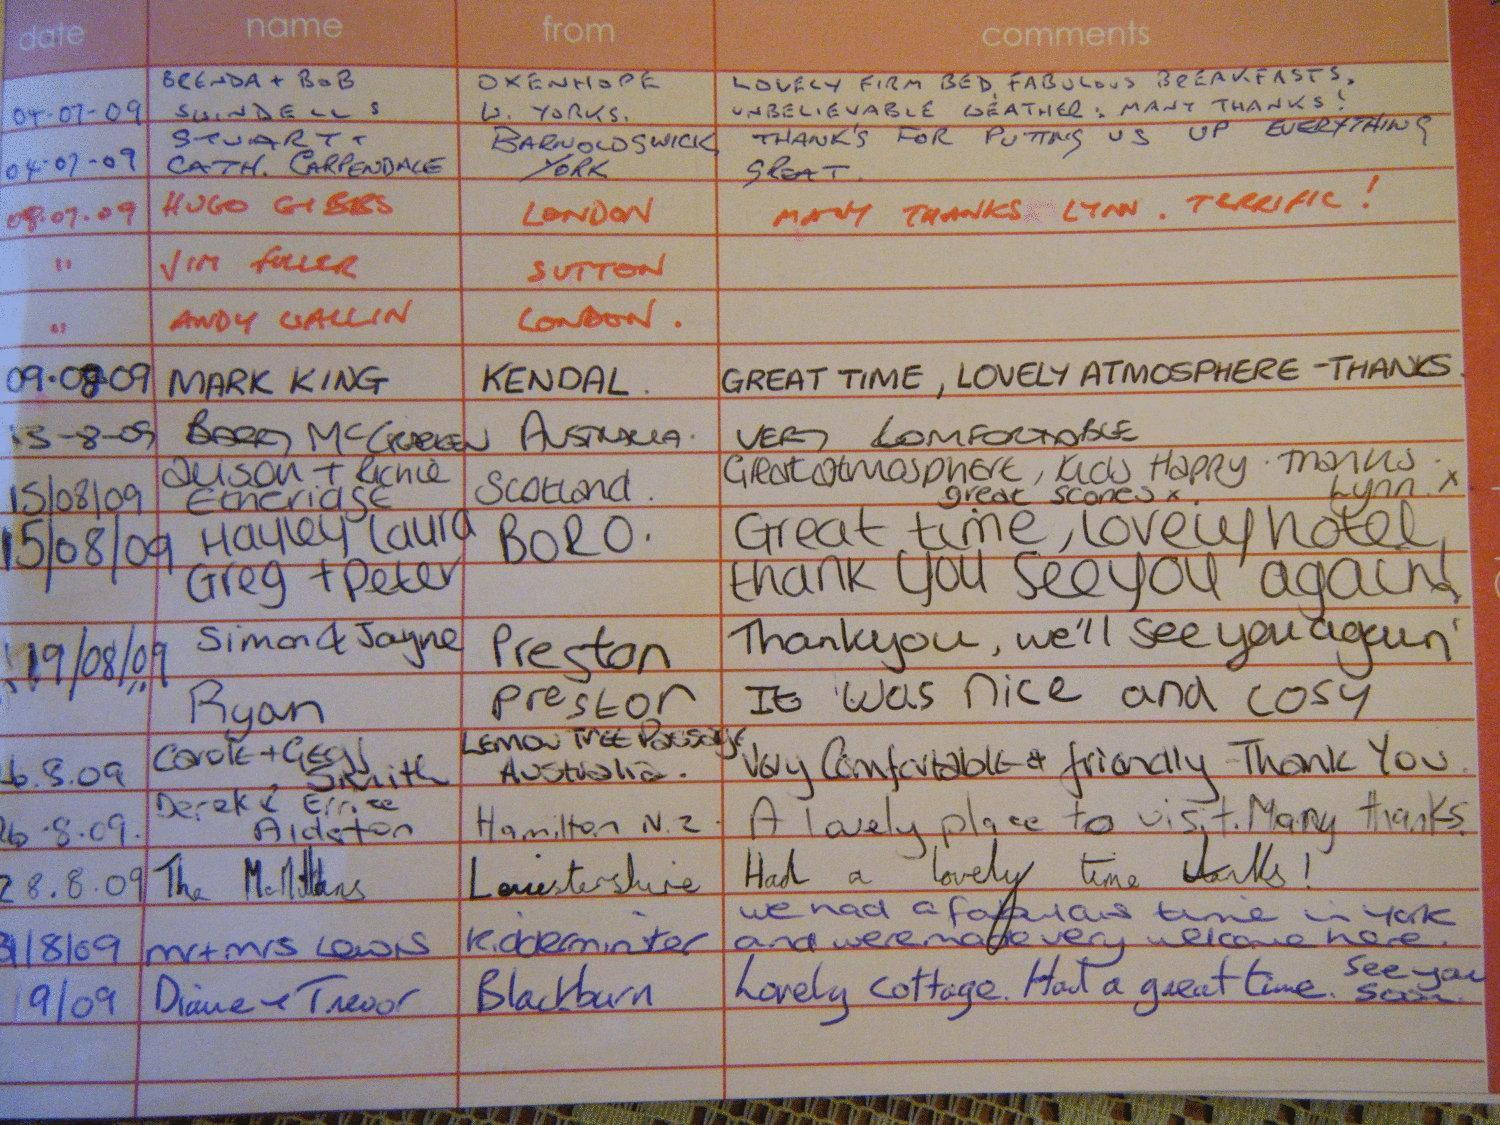 date name from comments
BRENDA + BOB OXENHOPE LOVELY FIRM BED, FABULOUS BREAKFASTS,
04-07-09 SWINDELLS W. YORKS. UNBELIEVABLE WEATHER. MANY THANKS!
STUART + BARNOLDSWICK THANK'S FOR PUTTING US UP EVERYTHING
04-07-09 CATH. CARPENDALE YORK GREAT.
08.07.09 HUGO GIBBS LONDON MANY THANKS LYNN. TERRIFIC!
" JIM FULLER SUTTON
" ANDY WALLIN LONDON.
09.08.09 MARK KING KENDAL. GREAT TIME, LOVELY ATMOSPHERE - THANKS.
13-8-09 BARRY McCRACKEN AUSTRALIA. VERY COMFORTABLE
Alison + Richie Great atmosphere, kids Happy. Thanks.
15/08/09 Etheridge Scotland. great scones x. Lynn. x
15/08/09 Hayley Laura BORO. Great time, lovely hotel,
Greg + Peter thank you see you again!
19/08/09 Simon & Jayne Preston Thankyou, we'll see you again'
Ryan Preston It was nice and cosy
Carole + Geoff LEMON TREE Passage
6.8.09 Smith Australia. Very Comfortable & friendly - Thank You.
Derek &
26.8.09. Hamilton N.Z. A lovely place to visit. Many thanks.
28.8.09 The McMillans Leicestershire Had a lovely time thanks!
we had a fabulous time in York
31/8/09 mr + mrs Lewis Kidderminster and were made very welcome here.
9/09 Diane & Trevor Blackburn Lovely cottage. Had a great time. See you
soon.